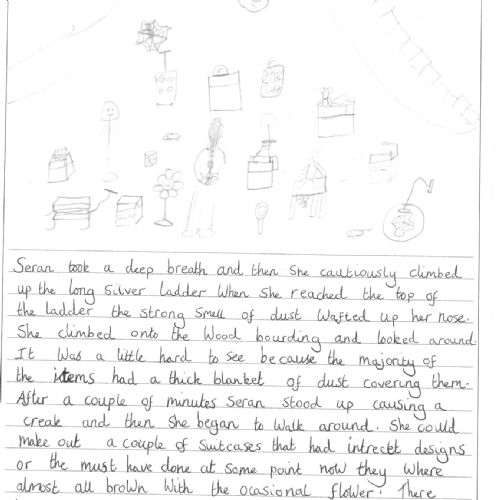 Seran took a deep breath and then she cautiously climbed
up the long silver ladder when she reached the top of
the ladder the strong smell of dust wafted up her nose.
She climbed onto the wood bourding and looked around.
It was a little hard to see because the majority of
the items had a thick blanket of dust covering them.
After a couple of minutes Seran stood up causing a
creak and then she began to walk around. She could
make out a couple of suitcases that had intrectet designs
or the must have done at some point now they where
almost all brown with the ocasional flower. There